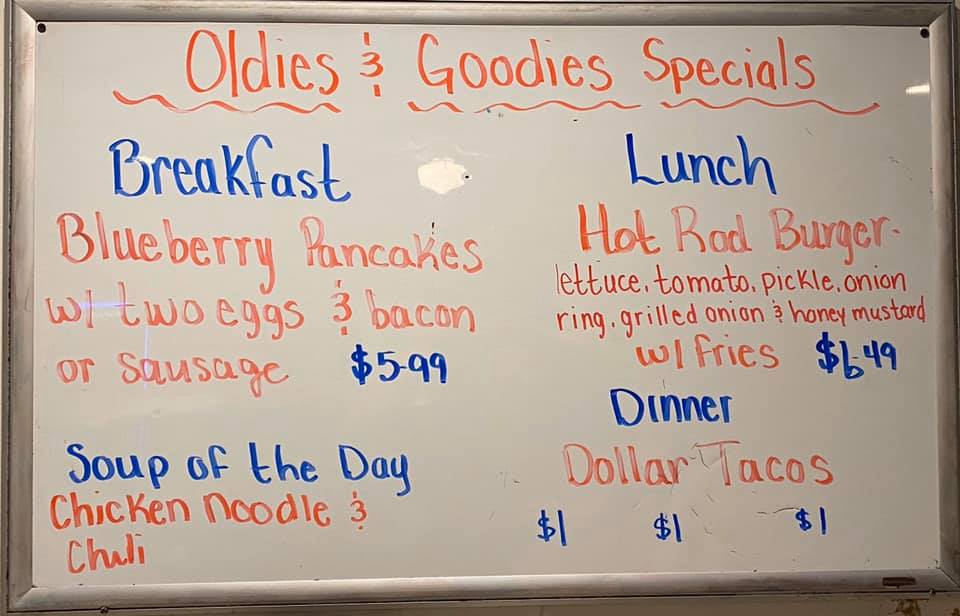 Oldies & Goodies Specials
Breakfast
Blueberry Pancakes
w/ two eggs & bacon
or sausage $5.99
Soup of the Day
Chicken Noodle &
Chili
Lunch
Hot Rod Burger-
lettuce, tomato, pickle, onion
ring, grilled onion & honey mustard
w/ fries $6.49
Dinner
Dollar Tacos
$1 $1 $1